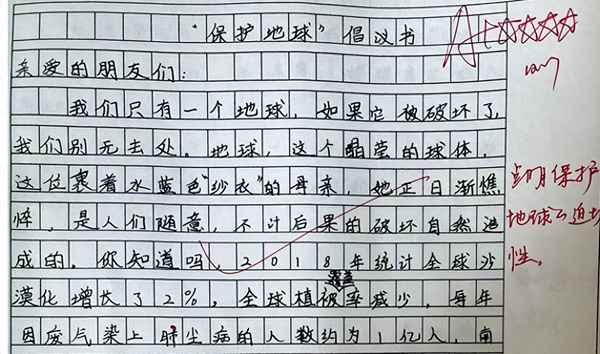 “保护地球”倡议书
亲爱的朋友们:
我们只有一个地球,如果它被破坏了,
我们别无去处。地球,这个晶莹的球体,
这位裹着水蓝色“纱衣”的母亲,她正日渐憔
悴,是人们随意,不计后果的破坏自然造
成的。你知道吗,2018年统计全球沙
漠化增长了2%,全球植被覆盖率减少,每年
因废气染上肺尘病的人数约为1亿人,南
A+
点明保护
地球的迫切
性。